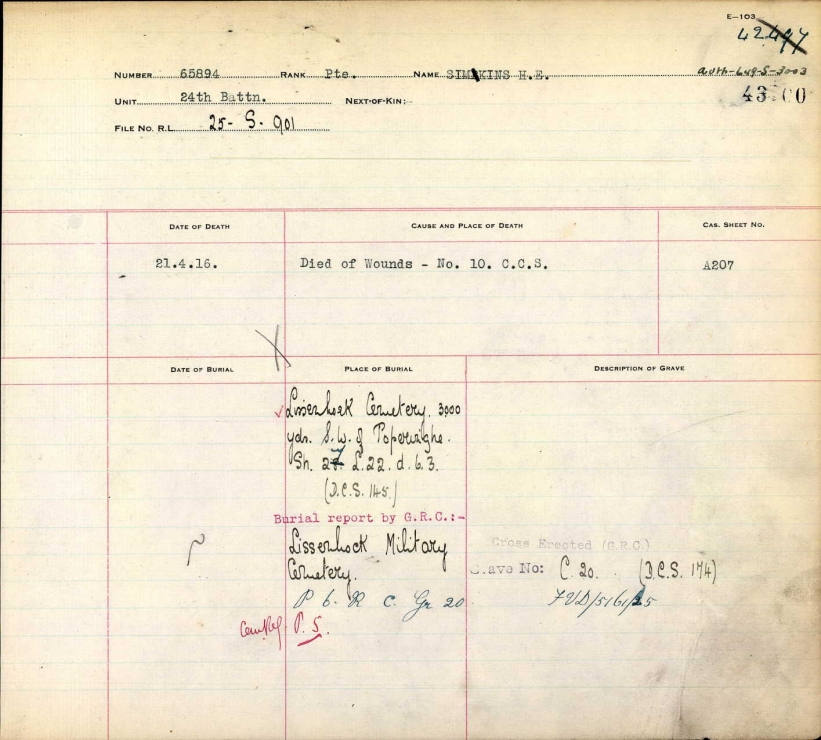 E-103
42497
auth-649-S-3003
NUMBER 65894 RANK Pte. NAME SIMKINS H.E.
43 00
UNIT 24th Battn. NEXT-OF-KIN:-
FILE NO. R.L. 25- S. 901
DATE OF DEATH CAUSE AND PLACE OF DEATH CAS. SHEET NO.
21.4.16. Died of Wounds - No. 10. C.C.S. A207
DATE OF BURIAL PLACE OF BURIAL DESCRIPTION OF GRAVE
Lissenhoek Cemetery. 3000
yds. S.W. of Poperinghe.
Sh. 27 L.22. d. 6. 3.
(D.C.S. 145.)
Burial report by G.R.C.:-
Lissenhock Military
Cemetery.
Cross Erected (G.R.C.)
Grave No: C. 20. (D.C.S. 174)
P 6. R C. Gr 20
P. 5.